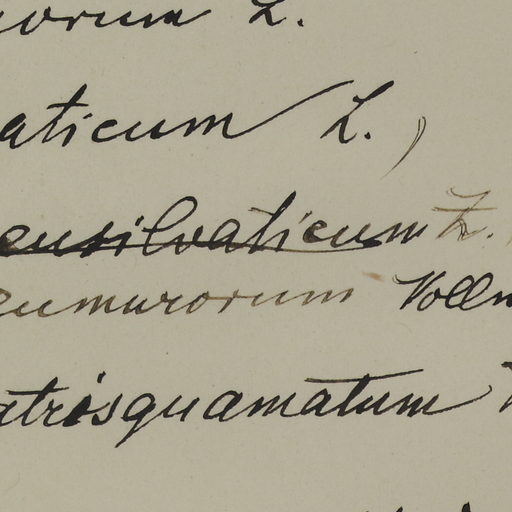 orum L.
aticum L.
eusilvaticum L.
eumurorum Vollm
atrisquamatum